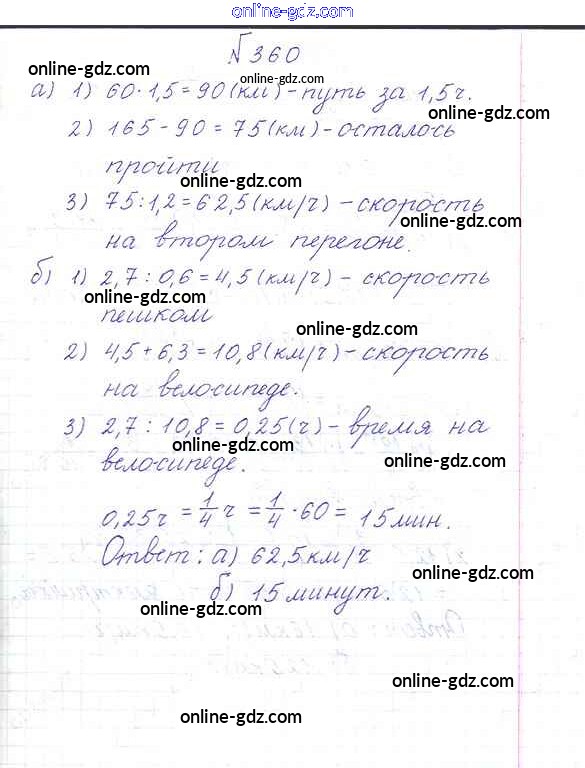 online-gdz.com
№360
online-gdz.com
online-gdz.com
а) 1) 60·1,5=90(км)-путь за 1,5ч.
online-gdz.com
2) 165-90=75(км)-осталось
пройти
online-gdz.com
3) 75:1,2=62,5(км/ч)-скорость
online-gdz.com
на втором перегоне.
б) 1) 2,7:0,6=4,5(км/ч)-скорость
online-gdz.com
пешком
online-gdz.com
2) 4,5+6,3=10,8(км/ч)-скорость
на велосипеде.
3) 2,7:10,8=0,25(ч)-время на
online-gdz.com
велосипеде.
online-gdz.com
0,25ч = 1/4 ч = 1/4·60 = 15мин.
Ответ: а) 62,5км/ч
online-gdz.com
б) 15минут.
online-gdz.com
online-gdz.com
online-gdz.com